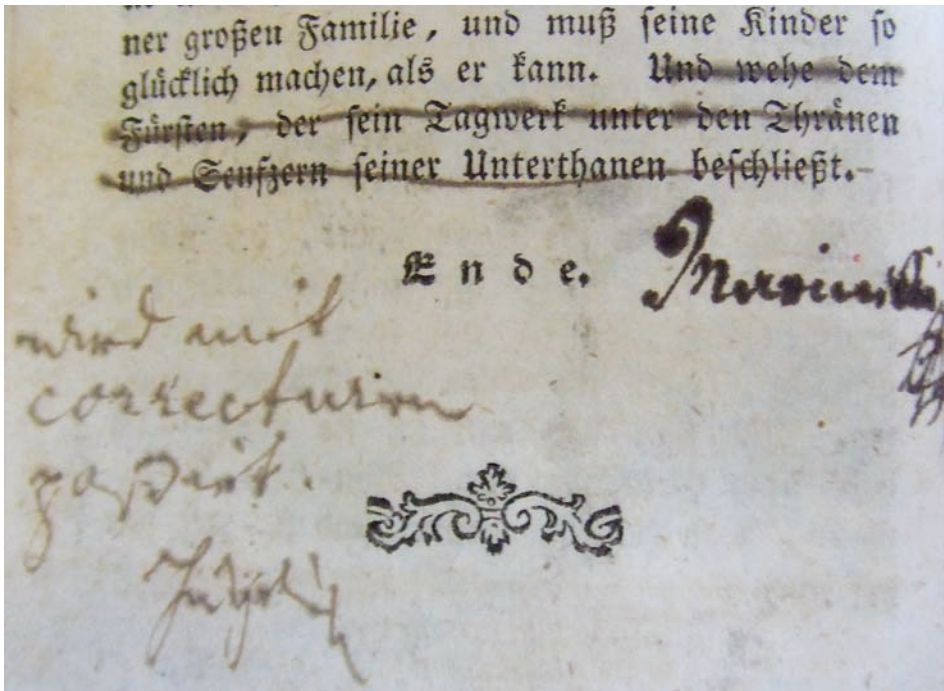 ner großen Familie, und muß seine Kinder so
glücklich machen, als er kann. Und wehe dem
Fürsten, der sein Tagwerk unter den Thränen
und Seufzern seiner Unterthanen beschließt.
Ende.
wird mit
correcturen
paßirt.